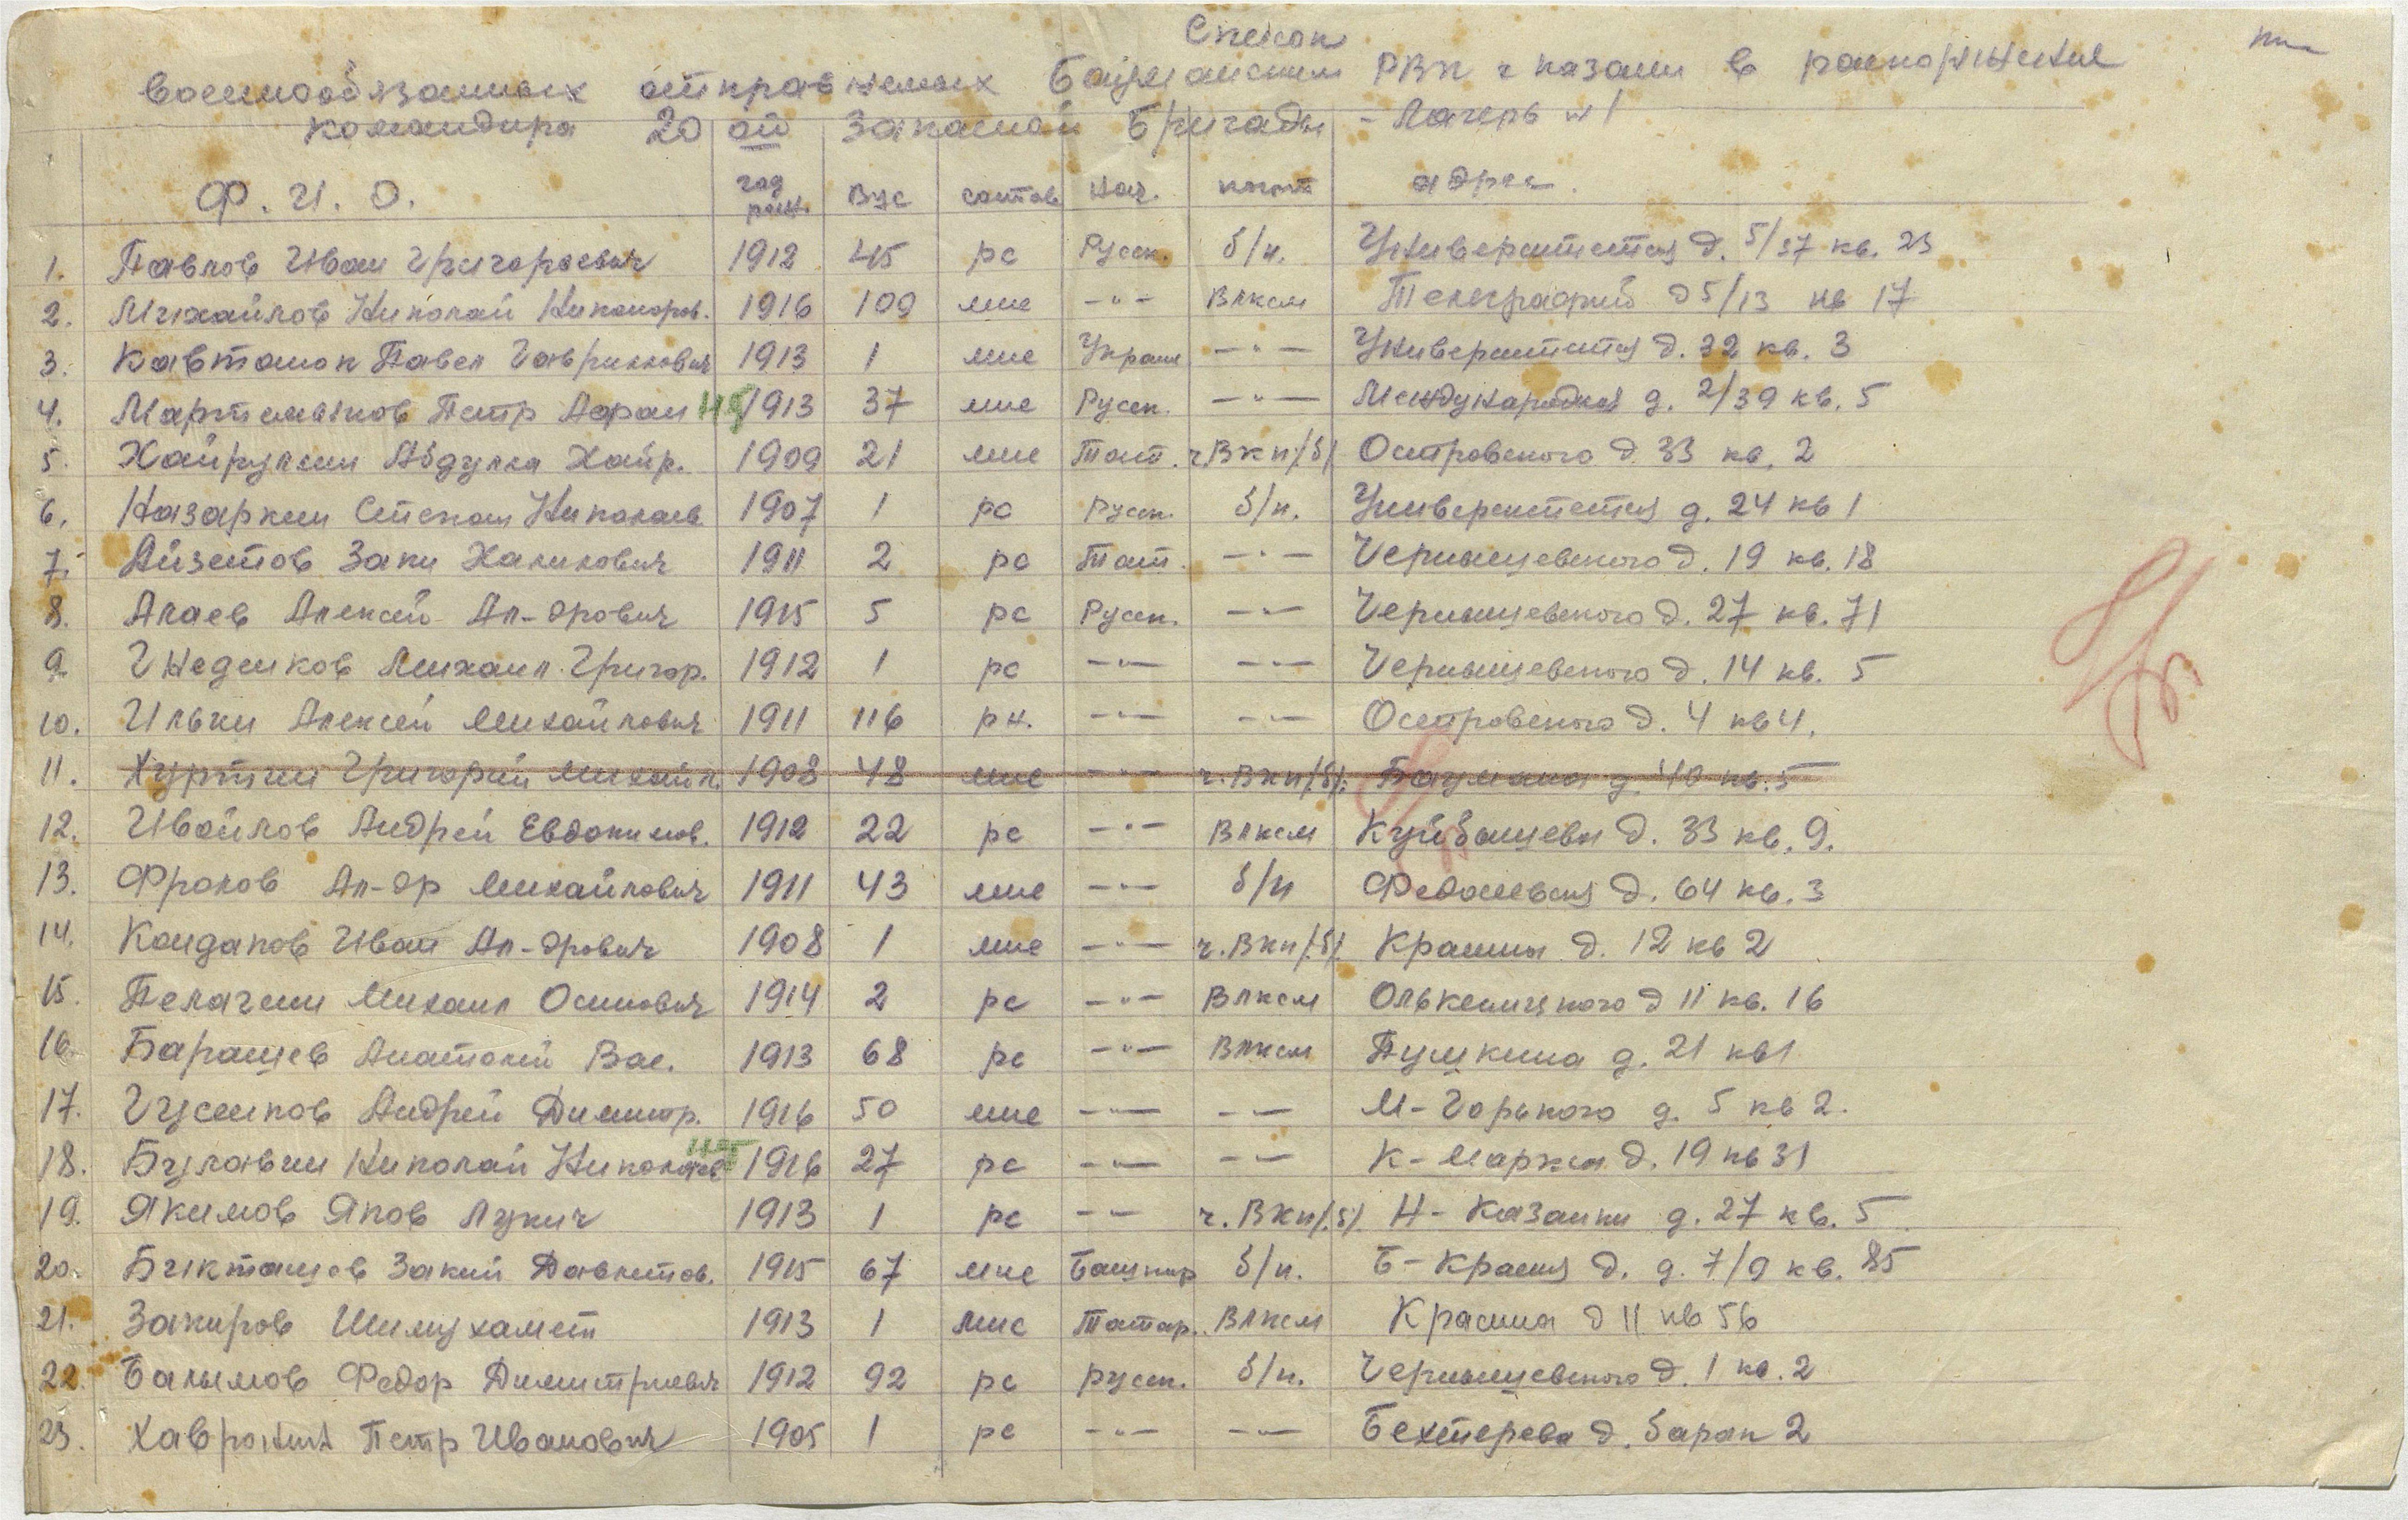 Список
военнообязанных отправляемых Бауманским РВК г Казани в распоряжение
командира 20 ой Запасной Бригады - Лагерь №1
Ф. И. О. год рож. ВУС состав Нац. парт адрес.
1. Павлов Иван Григорьевич 1912 45 рс Русск. б/п. Университетск д. 5/37 кв. 23
2. Михайлов Николай Никоноров. 1916 109 мнс -"- Влксм Телеграфный д 5/13 кв 17
3. Кавтанюк Павел Гавриилович 1913 1 мнс Украин -"- Университетск д. 32 кв. 3
4. Мартемьянов Петр 1913 37 мнс Русск. -"- Международная д. 2/39 кв. 5
5. Хайруллин Абдулла Хайр. 1909 21 мнс Тат. ч.Вкп/б/ Островского д. 33 кв. 2
6. Назаркин Степан Николаев 1907 1 рс Русск. б/п. Университетск д. 24 кв 1
7. Айзетов Заки Халилович 1911 2 рс Тат. -"- Чернышевского д. 19 кв. 18
8. Агаев Алексей Ал-дрович 1915 5 рс Русск. -"- Чернышевского д. 27 кв. 71
9. Гнеденков Михаил Григор. 1912 1 рс -"- -"- Чернышевского д. 14 кв. 5
10. Илькин Алексей Михайлович 1911 116 рн. -"- -"- Островского д. 4 кв 4.
11. Хуртин Григорий Михайл. 1908 48 мнс -"- ч.Вкп/б/. Баумана д. 40 кв. 5
12. Ивойлов Андрей Евдокимов. 1912 22 рс -"- Влксм Куйбышева д. 33 кв. 9.
13. Фролов Ал-др Михайлович 1911 43 мнс -"- б/п Федосеевск д. 64 кв. 3
14. Кондаков Иван Ал-дрович 1908 1 мнс -"- ч.Вкп/б/. Красина д. 12 кв 2
15. Пелагеин Михаил Осипович 1914 2 рс -"- Влксм Олькеницкого д 11 кв. 16
16. Баранцев Анатолий Вас. 1913 68 рс -"- Влксм Пушкина д. 21 кв1
17. Гусенков Андрей Димитр. 1916 50 мнс -"- -"- М-Горького д. 5 кв 2.
18. Булавин Николай Николаев 1916 27 рс -"- -"- К-Маркса д. 19 кв 31
19. Якимов Яков Лукич 1913 1 рс -"- ч. Вкп/б/. Н-Казанки д. 27 кв. 5
20. Бикташев Закий Давлетов. 1915 67 мнс Башкир б/п. Б-Красн д. д. 7/9 кв. 85
21. Закиров Шимухамет 1913 1 мнс Татар. Влксм Красина д 11 кв 56
22. Балымов Федор Димитриевич 1912 92 рс русск. б/п. Чернышевского д. 1 кв. 2
23. Хавронин Петр Иванович 1905 1 рс -"- -"- Бехтерева д. барак 2